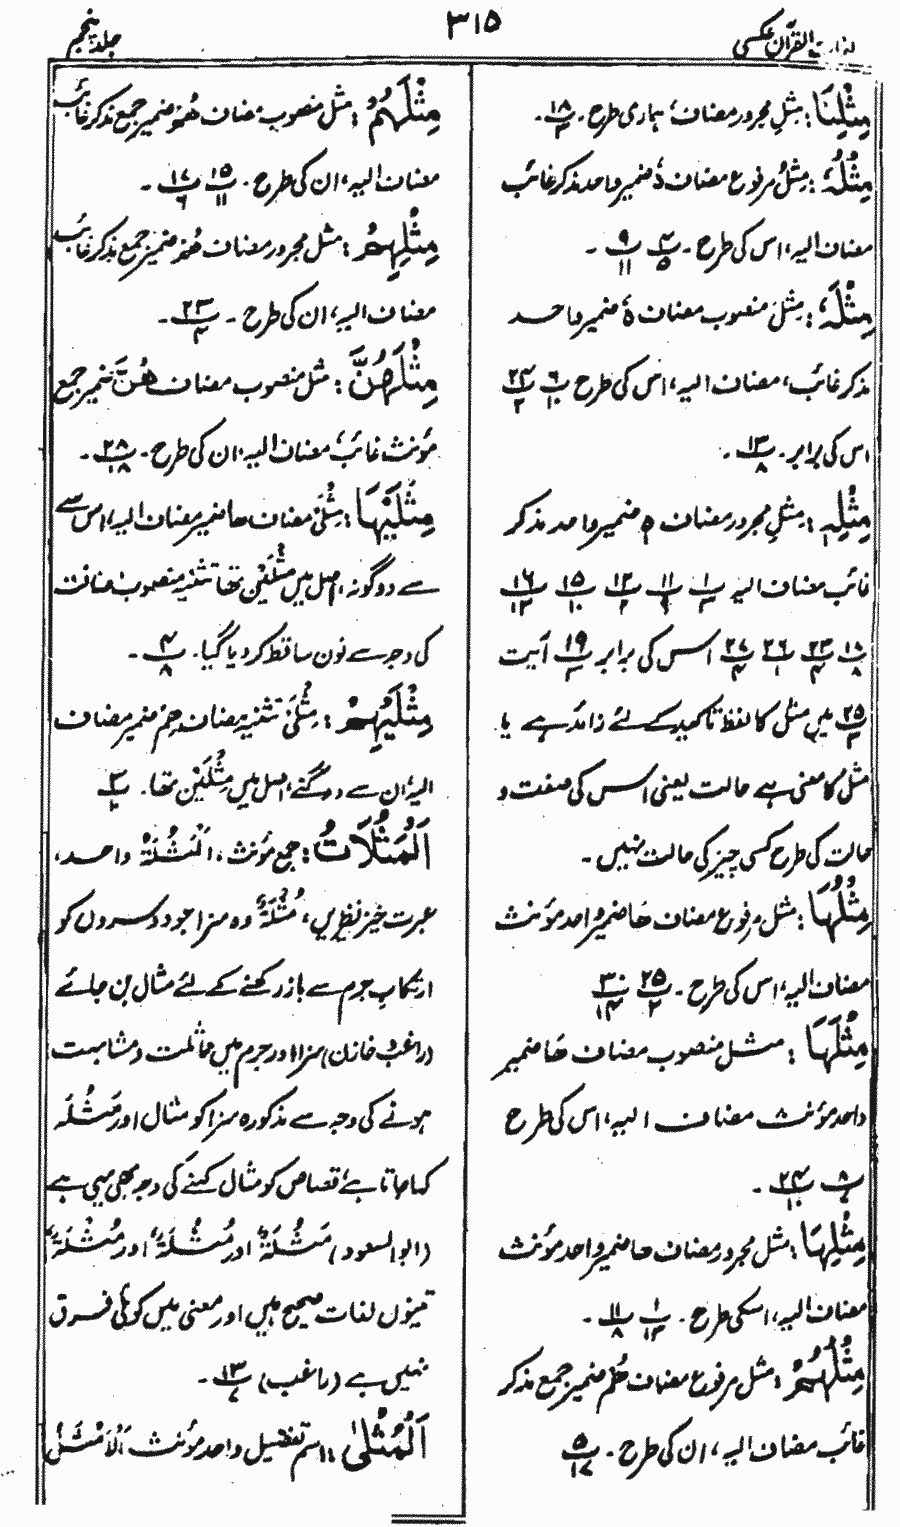 لغات القرآن عکسی
۳۱۵
جلد پنجم
مِثْلِنَا: مِثْلِ مجرور مضاف، ہماری طرح۔ ۱۸/۳۔
مِثْلُہٗ: مِثْلُ مرفوع مضاف ہٗ ضمیر واحد مذکر غائب
مضاف الیہ، اس کی طرح۔ ۴/۵ ۹/۱۱۔
مِثْلَہٗ: مِثْلَ منصوب مضاف ہٗ ضمیر واحد
مذکر غائب، مضاف الیہ، اس کی طرح ۶/۱۰ ۲۴/۲
اس کی برابر۔ ۱۳/۸۔
مِثْلِہٖ: مِثْلِ مجرور مضاف ہٖ ضمیر واحد مذکر
غائب مضاف الیہ ۱/۳ ۱۱/۶ ۱۲/۲ ۱۵/۱۰ ۱۶/۱۳
۱۸/۸ ۲۳/۴ ۲۶/۱ ۲۷/۴ اس کی برابر ۱۹/۳ آیت
۲۵/۳ میں مثل کا لفظ تاکید کے لئے زائد ہے یا
مثل کا معنی ہے حالت یعنی اس کی صفت و
حالت کی طرح کسی چیز کی حالت نہیں۔
مِثْلُہَا: مِثْلُ مرفوع مضاف ھَا ضمیر واحد مؤنث
مضاف الیہ، اس کی طرح۔ ۲۵/۲ ۳۰/۱۴
مِثْلَہَا: مثل منصوب مضاف ھَا ضمیر
واحد مؤنث مضاف الیہ، اس کی طرح
۸/۶ ۲۴/۱۰۔
مِثْلِہَا: مثل مجرور مضاف ھا ضمیر واحد مؤنث
مضاف الیہ، اسکی طرح۔ ۱/۱۳ ۱۱/۸۔
مِثْلُہُمْ: مثل مرفوع مضاف ھُمْ ضمیر جمع مذکر
غائب مضاف الیہ، ان کی طرح۔ ۵/۱۷
مِثْلَہُمْ: مثل منصوب مضاف ھُمْ ضمیر جمع مذکر غائب
مضاف الیہ، ان کی طرح۔ ۱۵/۱۱ ۱۷/۶۔
مِثْلِہِمْ: مثل مجرور مضاف ھُمْ ضمیر جمع مذکر غائب
مضاف الیہ، ان کی طرح۔ ۲۳/۴۔
مِثْلَہُنَّ: مثل منصوب مضاف ھُنَّ ضمیر جمع
مؤنث غائب، مضاف الیہ، ان کی طرح۔ ۲۸/۱۸۔
مِثْلَیْہَا: مِثْلَیْ مضاف ھا ضمیر مضاف الیہ، اس سے
سے دوگونہ، اصل میں مِثْلَیْن تھا تثنیہ منصوب اضافت
کی وجہ سے نون ساقط کر دیا گیا۔ ۴/۸۔
مِثْلَیْہِمْ: مِثْلَیْ تثنیہ مضاف ہِمْ ضمیر مضاف
الیہ، ان سے دوگنے، اصل میں مِثْلَیْن تھا۔ ۳/۱۰
اَلْمَثُلَاتُ: جمع مؤنث، اَلْمَثُلَۃُ واحد،
عبرت خیز نظیریں، مُثْلَۃٌ وہ سزا جو دوسروں کو
ارتکاب جرم سے باز رکھنے کے لئے مثال بن جائے
(راغب و خازن) سزا اور جرم میں مماثلت و مشابہت
ہونے کی وجہ سے مذکورہ سزا کو مثال اور مَثُلَہ
کہا جاتا ہے، قصاص کو مثال کہنے کی وجہ بھی یہی ہے
(ابو السعود) مَثُلَۃٌ اور مُثُلَۃٌ اور مُثْلَۃٌ
تینوں لغات صحیح ہیں اور معنی میں کوئی فرق
نہیں ہے (راغب) ۱۳/۷۔
اَلْمُثْلٰی: اسم تفضیل واحد مؤنث۔ اَلْاَمْثَلُ